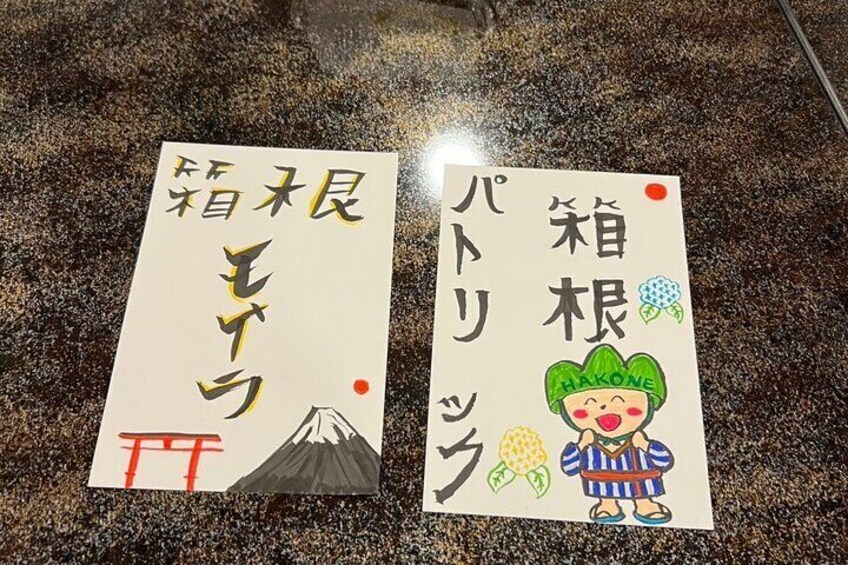 箱根
モイラ
箱根
パトリック
HAKONE